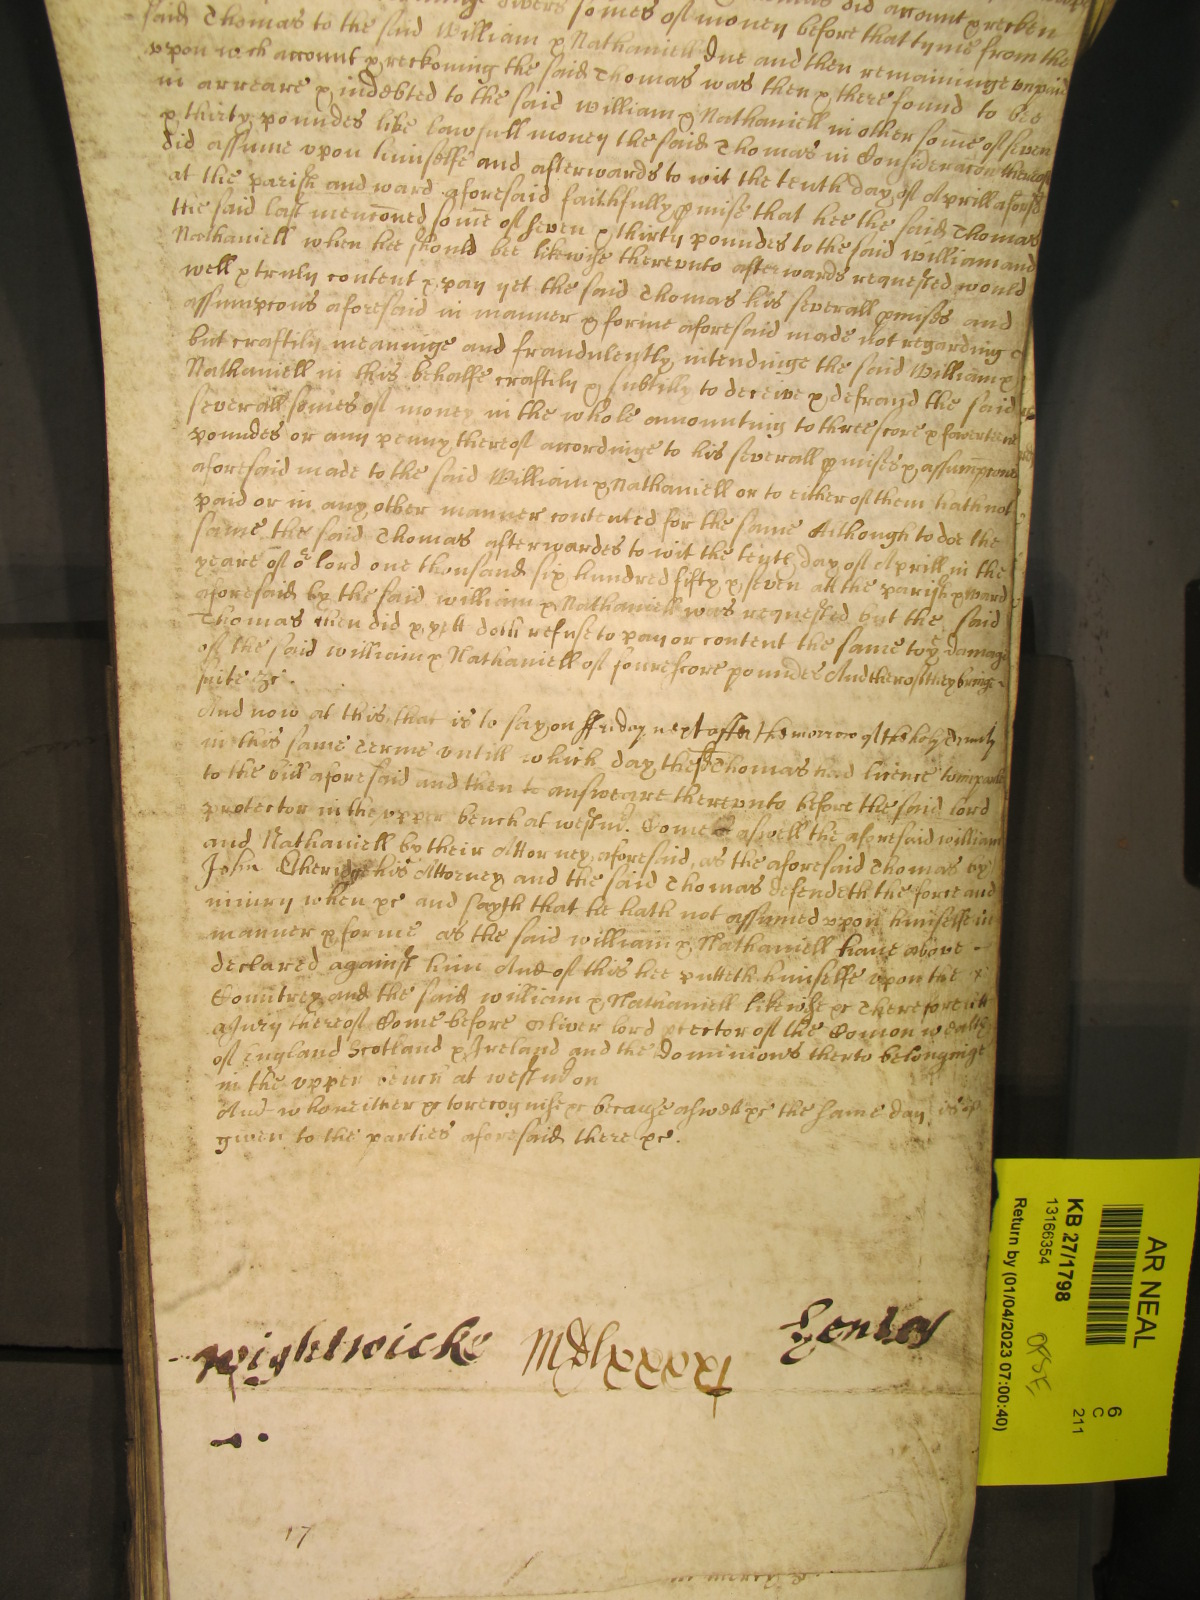 divers somes of money before that tyme from the
said Thomas to the said William & Nathaniell due and then remaininge unpaid
upon wch account & reckoning the said Thomas was then & there found to bee
in arreare & indebted to the said William & Nathaniell in other some of seven
& thirty poundes like lawfull money the said Thomas in Consideracon thereof
did assume upon himselfe and afterwards to wit the tenth day of Aprill aforesd
at the parish and ward aforesaid faithfully pmise that hee the said Thomas
the said last menconed some of seven & thirty poundes to the said William and
Nathaniell when hee should bee likewise thereunto afterwards requested would
well & truly content & pay yet the said Thomas his severall pmises and
assumptions aforesaid in manner & forme aforesaid made not regarding
but craftily meaninge and fraudulently intendinge the said William &
Nathaniell in this behalfe craftily & subtilly to deceive & defraud the said
severall somes of money in the whole amounting to threescore & fowerteene
poundes or any penny thereof accordinge to his severall pmises & assumpcons
aforesaid made to the said William & Nathaniell or to either of them hath not
paid or in any other manner contented for the same Although to doe the
same the said Thomas afterwardes to wit the tenth day of Aprill in the
yeare of or lord one thousand six hundred fifty & seven att the parish & ward
aforesaid by the said William & Nathaniell was requested but the said
Thomas then did & yett doth refuse to pay or content the same to ye damage
of the said William & Nathaniell of fourescore poundes And therof they bringe
suite &c.
And now at this that is to say on ffriday next after the morrow of the holy Trinity
in this same Terme untill which day the sd Thomas had licence to imparle
to the bill aforesaid and then to answeare thereunto before the said lord
protector in the upper bench at westmr. Come aswell the aforesaid William
and Nathaniell by their Attorney aforesaid, as the aforesaid Thomas by
John Etheridge his Attorney and the said Thomas defendeth the force and
iniury when &c and sayth that he hath not assumed upon himselfe in
manner & forme as the said William & Nathaniell have above
declared against him And of this hee putteth himselfe upon the
Countrey and the said William & Nathaniell likewise &c Therefore lett
a Jury thereof Come before Oliver lord ptector of the Comon wealth
of England Scotland & Ireland and the Dominions therto belonginge
in the upper bench at westm on
And who neither &c to recognise &c because aswell &c the same day is
given to the parties aforesaid there &c.
Wightwicke
17
AR NEAL
6
C
211
KB 27/1798
13166354
Return by (01/04/2023 07:00:40)